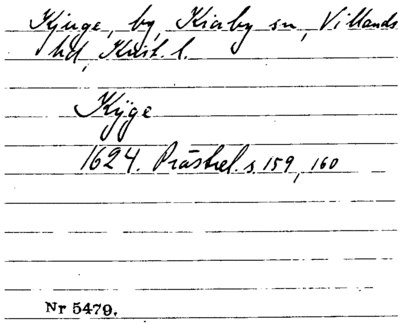 Kjuge, by, Kiaby sn, Villands
hd, Krist. l.
Kÿge
1624. Prästrel. s. 159, 160
Nr 5479.